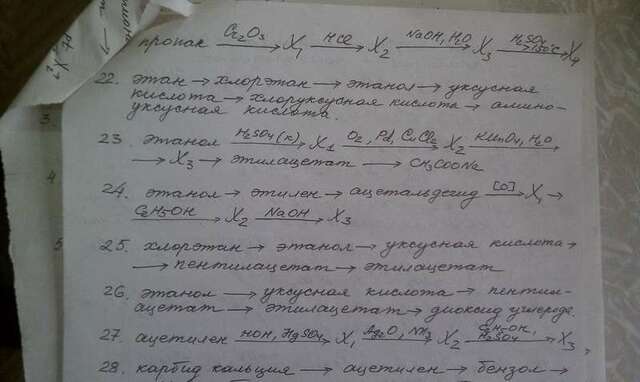 пропан Cr₂O₃→ X₁ HCl→ X₂ NaOH, H₂O→ X₃ H₂SO₄, >150°C→ X₄
22. этан → хлорэтан → этанол → уксусная
кислота → хлоруксусная кислота → амино-
уксусная кислота.
23. этанол H₂SO₄(к)→ X₁ O₂, Pd, CuCl₂→ X₂ KMnO₄, H₂O,
→ X₃ → этилацетат → CH₃COONa
24. этанол → этилен → ацетальдегид [O]→ X₁ →
C₂H₅OH→ X₂ NaOH→ X₃
25. хлорэтан → этанол → уксусная кислота →
→ пентилацетат → этилацетат
26. этанол → уксусная кислота → пентил-
ацетат → этилацетат → диоксид углерода.
27. ацетилен HOH, HgSO₄→ X₁ Ag₂O, NH₃→ X₂ C₂H₅OH, H₂SO₄→ X₃,
28. карбид кальция → ацетилен → бензол →